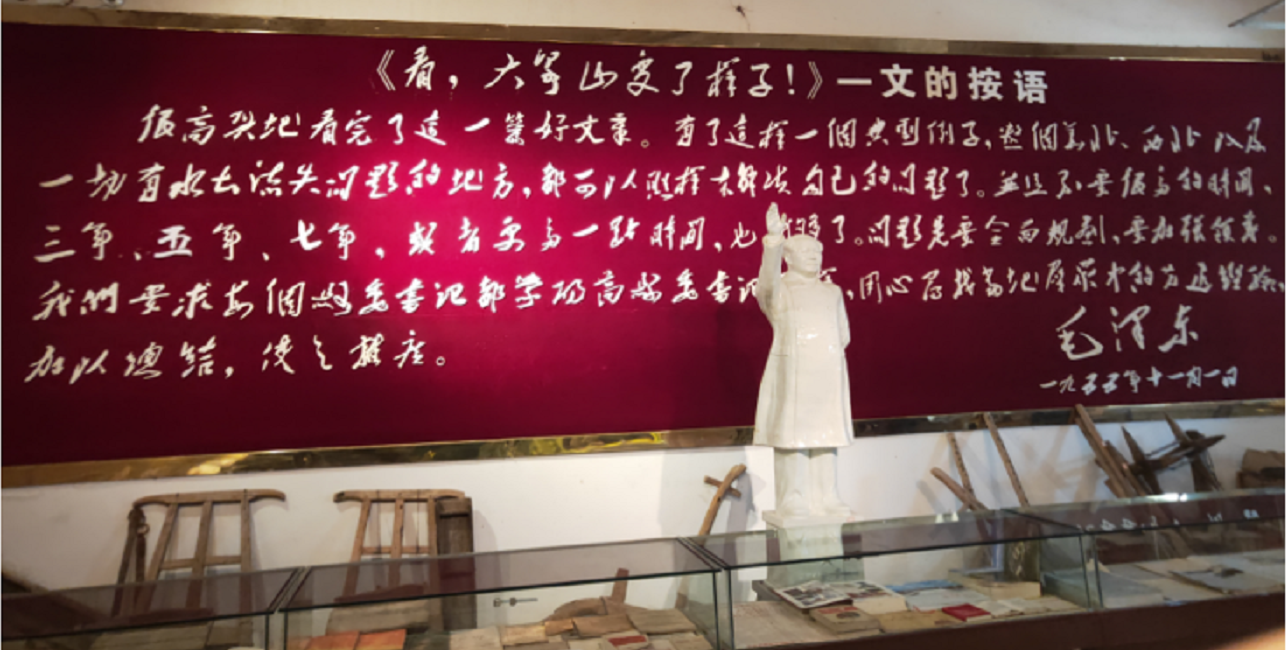 《看，大泉山变了样子！》一文的按语
很高兴地看完了這一篇好文章。有了這样一個典型例子，整個华北、西北以及
一切有水土流失问题的地方，都可以照样去解决自己的问题了。並且不要很多的時间，
三年、五年、七年，或者更多一點時间，也够了。问题是要全面规划，要加强领导。
我們要求每個縣委書记都学阳高縣委書记，用心寻找当地群众中的先进經验，
加以總结，使之推廣。
毛泽东
一九五五年十一月一日